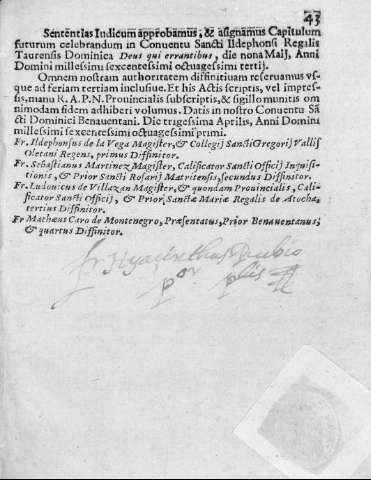 43
Sententias Iudicum approbamus, & asignamus Capitulum
futurum celebrandum in Conuentu Sancti Ildephonsi Regalis
Taurensis Dominica Deus qui errantibus, die nona Maij, Anni
Domini millessimi sexcentessimi octuagessimi tertij.
Omnem nostram authoritatem diffinitiuam reseruamus vs-
que ad feriam tertiam inclusiue. Et his Actis scriptis, vel impres-
sis, manu R. A. P. N. Prouincialis subscriptis, & sigillo munitis om
nimodam fidem adhiberi volumus. Datis in nostro Conuentu Sã
cti Dominici Benauentani. Die trigessima Aprilis, Anni Domini
millessimi sexcentessimi octuagessimi primi.
Fr. Ildephonsus de la Vega Magister, & Collegij Sancti Gregorij Vallis
Oletani Regens, primus Diffinitor.
Fr. Sebastianus Martinez Magister, Calificator Sancti Officij Inquisi-
tionis, & Prior Sancti Rosarij Matritensis, secundus Diffinitor.
Fr. Ludouicus de Villazan Magister, & quondam Prouincialis, Cali-
ficator Sancti Officij, & Prior Sanctæ Mariæ Regalis de Atocha,
tertius Diffinitor.
Fr Matheus Caro de Montenegro, Præsentatus, Prior Benauentanus,
& quartus Diffinitor.
fr Hyacinthus Rubio
por plis